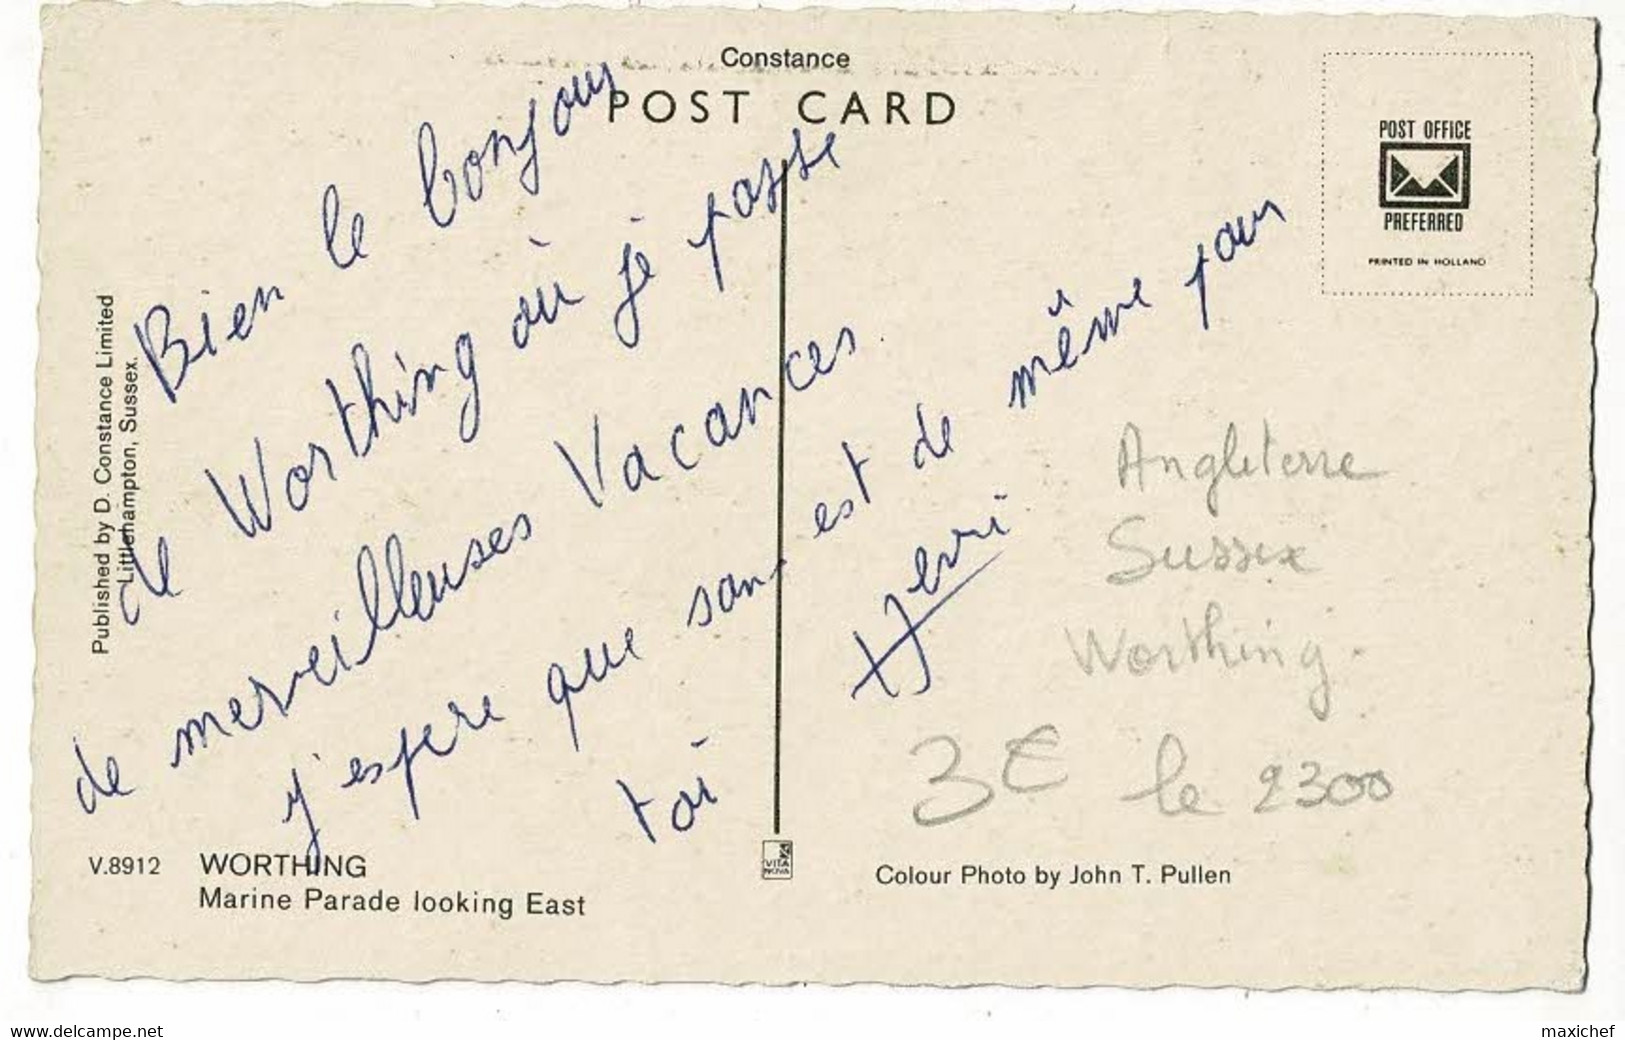 Constance
POST CARD
POST OFFICE
PREFERRED
PRINTED IN HOLLAND
Published by D. Constance Limited
Littlehampton, Sussex.
Bien le bonjour
de Worthing où je passe
de merveilleuses Vacances
j'espere que san est de même pour
toi
Henri
Angleterre
Sussex
Worthing.
3€ le 2300
V.8912 WORTHING
Marine Parade looking East
VITA
NOVA
Colour Photo by John T. Pullen
www.delcampe.net
maxichef